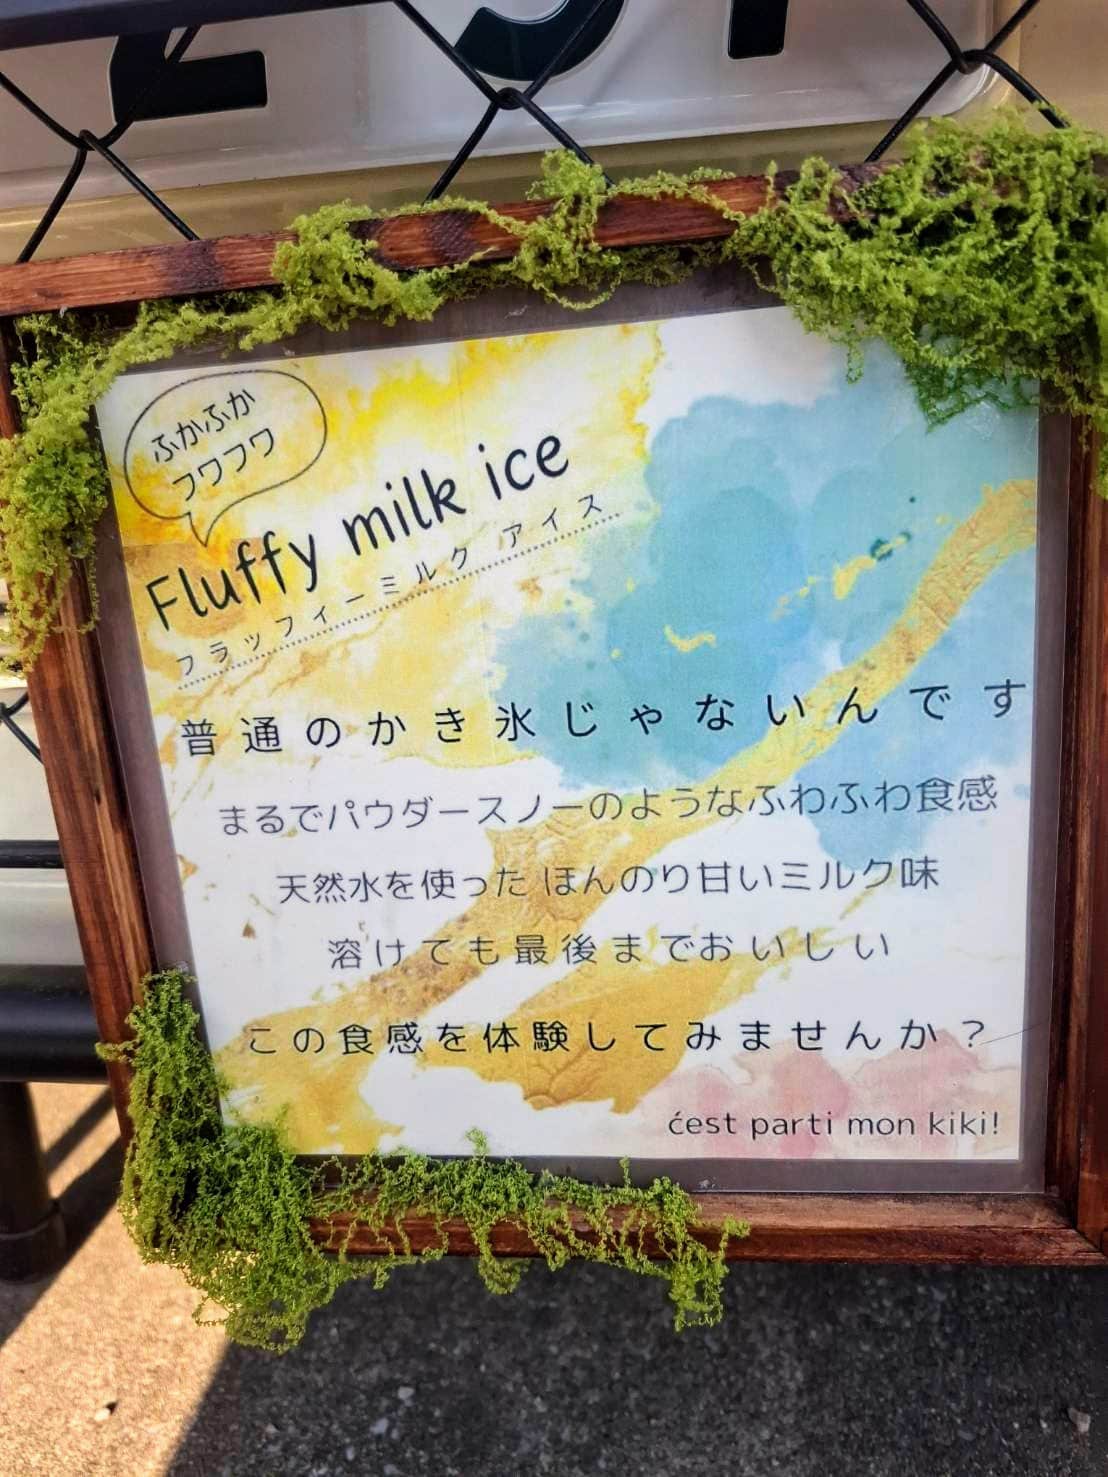 ふかふか
フワフワ
Fluffy milk ice
フラッフィーミルク アイス
普通のかき氷じゃないんです
まるでパウダースノーのようなふわふわ食感
天然水を使った ほんのり甘いミルク味
溶けても最後までおいしい
この食感を体験してみませんか？
ćest parti mon kiki!